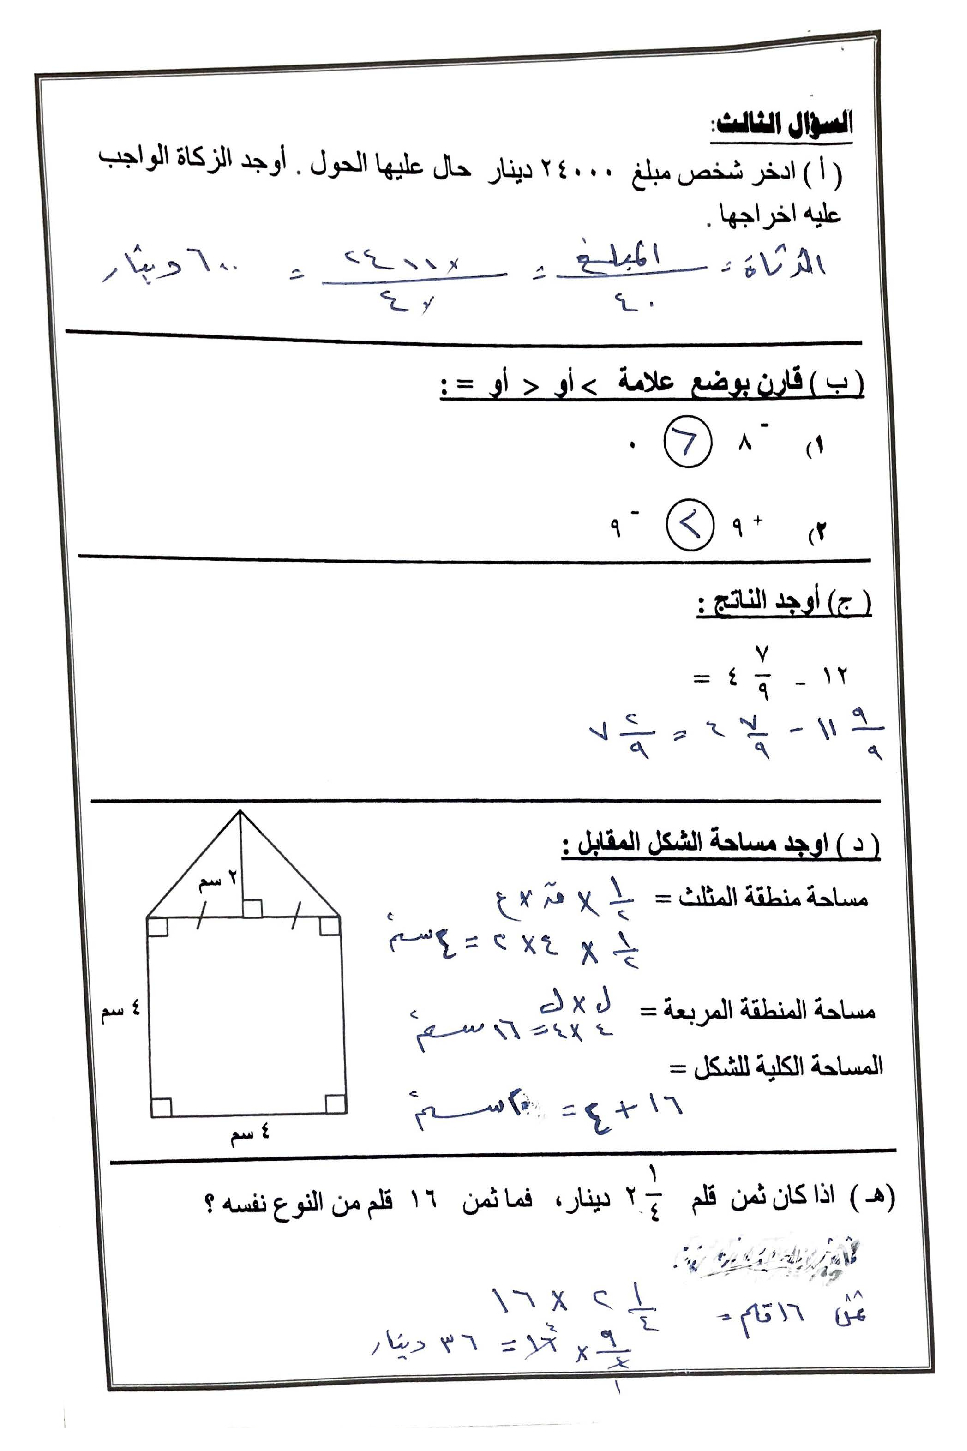 السؤال الثالث:
( أ ) ادخر شخص مبلغ ٢٤٠٠٠ دينار حال عليها الحول . أوجد الزكاة الواجب
عليه اخراجها .
الزكاة = المبلغ / ٤٠ = ٢٤٠٠٠ / ٤٠ = ٦٠٠ دينار
( ب ) قارن بوضع علامة > أو < أو = :
١) ‎-٨ < ٠
٢) ‎+٩ > ‎-٩
( ج) أوجد الناتج :
١٢ - ٤ ٧/٩ =
١١ ٩/٩ - ٤ ٧/٩ = ٧ ٢/٩
( د ) اوجد مساحة الشكل المقابل :
٢ سم
٤ سم
٤ سم
مساحة منطقة المثلث = ١/٢ × ق × ع
١/٢ × ٤ × ٢ = ٤ سم٢
مساحة المنطقة المربعة = ل × ل
٤ × ٤ = ١٦ سم٢
المساحة الكلية للشكل =
١٦ + ٤ = ٢٠ سم٢
(هـ) اذا كان ثمن قلم ٢ ١/٤ دينار، فما ثمن ١٦ قلم من النوع نفسه ؟
ثمن ١٦ قلم = ٢ ١/٤ × ١٦
٩/٤ × ١٦ = ٣٦ دينار